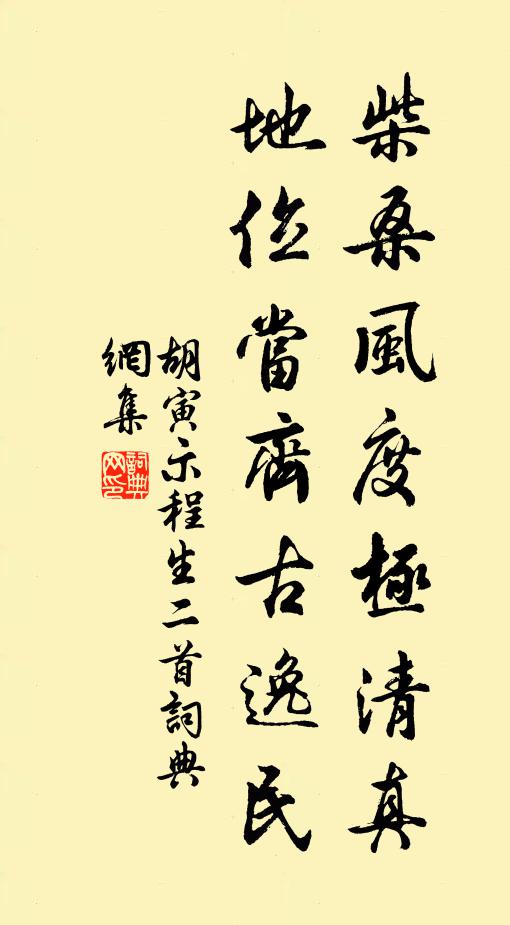 柴桑風度極清真
地位當齊古逸民
胡寅示程生二首詞典
網集
詞典網印